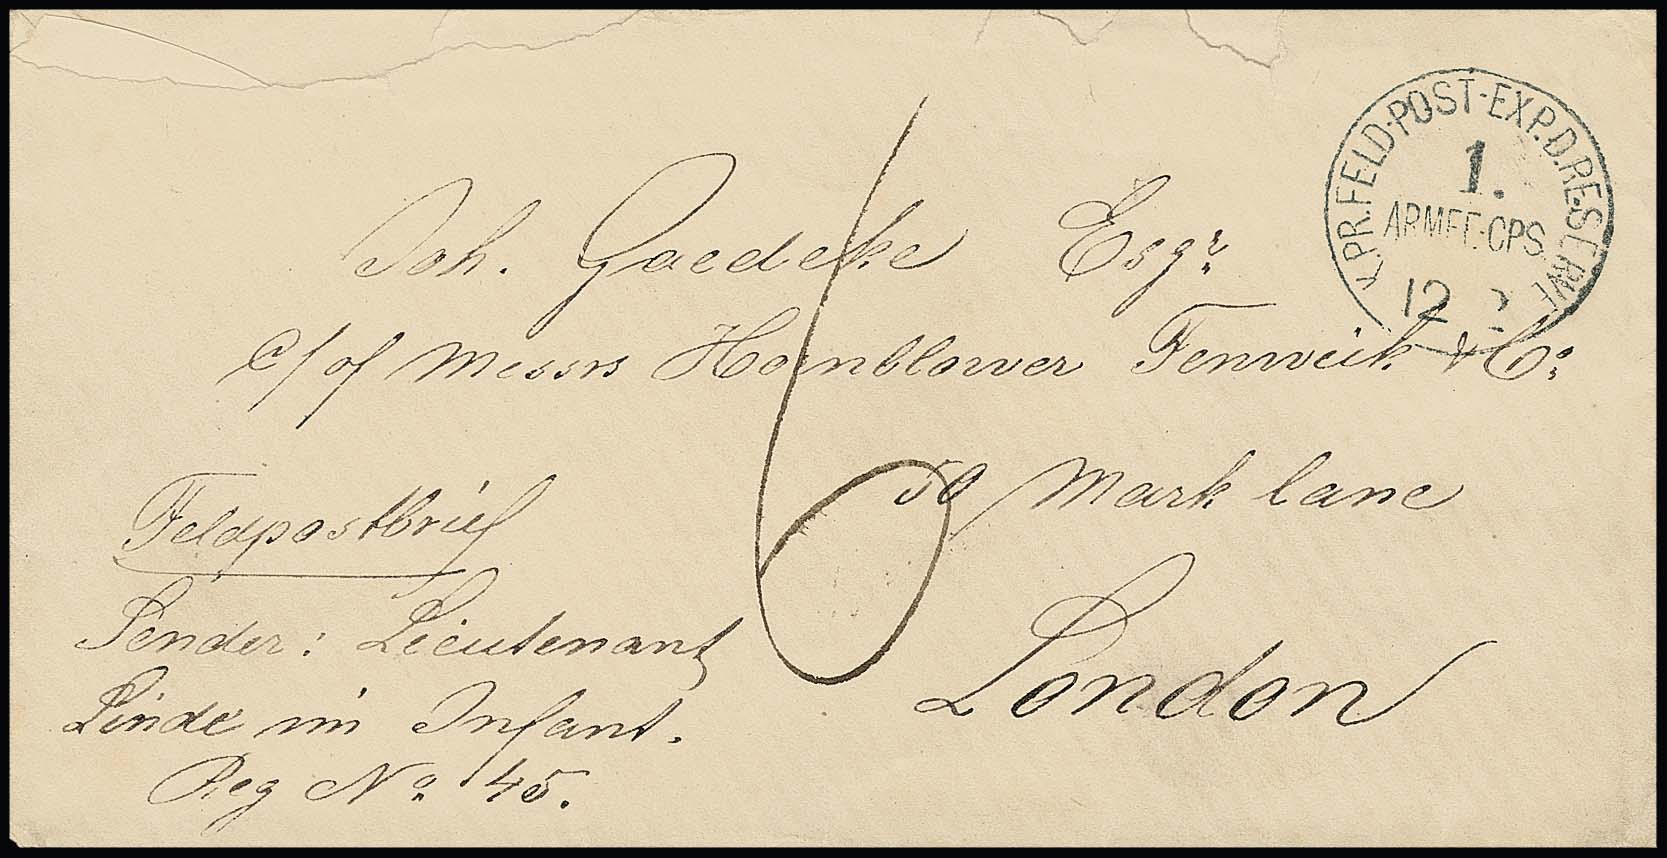 K.PR.FELD-POST-EXP.D.RESERVE
1.
ARMEE-CPS.
12 2
Joh. Gaedeke Esqr.
c/of Messrs Hornblower Fenweik & Co.
50 Mark lane
London
6
Feldpostbrief
Sender: Lieutenant
Linde im Infant.
Reg No. 45.